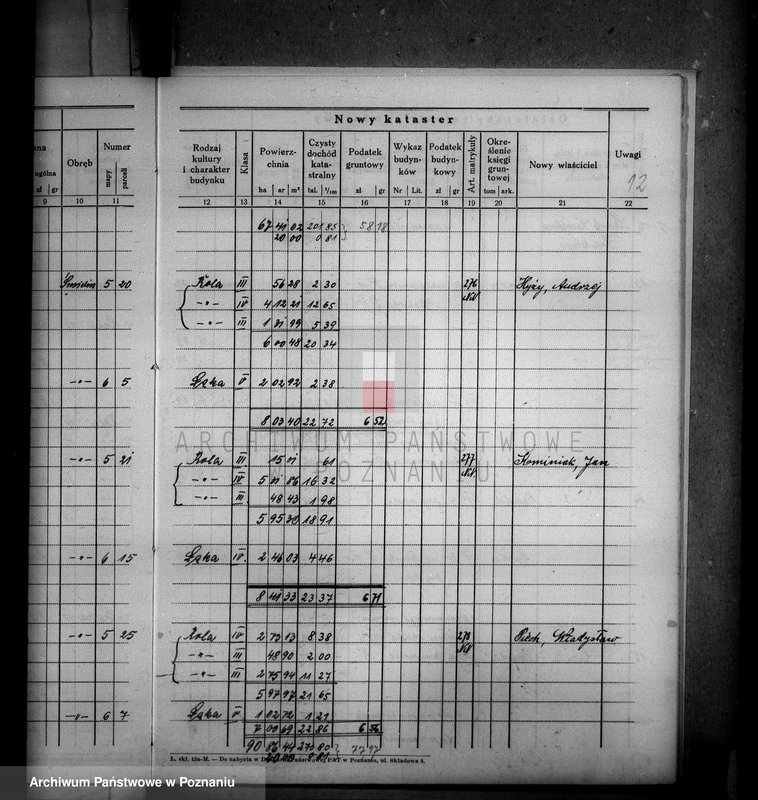 Nowy kataster
ogólna zł gr Obręb Numer mapy parceli Rodzaj kultury i charakter budynku Klasa Powierzchnia ha ar m² Czysty dochód katastralny tal. 1/100 Podatek gruntowy zł gr Wykaz budynków Nr Lit. Podatek budynkowy zł gr Art. matrykuły Określenie księgi gruntowej tom ark. Nowy właściciel Uwagi
12
9 10 11 12 13 14 15 16 17 18 19 20 21 22
67 41 02 201 85 58 18
20 00 0 81
5 20 Rola III 56 28 2 30 276 Hyży, Andrzej
-„- IV 4 12 21 12 65
-„- III 1 31 99 5 39
6 00 48 20 34
-„- 6 5 Łąka V 2 02 92 2 38
8 03 40 22 72 6 52
ARCHIWUM PAŃSTWOWE
W POZNANIU
-„- 5 21 Rola III 15 01 61 277 Kominiak, Jan
-„- IV 5 31 86 16 32
-„- III 48 43 1 98
5 95 30 18 91
-„- 6 15 Łąka IV 2 46 03 4 46
8 41 33 23 37 6 71
-„- 5 25 Rola IV 2 73 13 8 38 278 Piech, Władysław
-„- III 48 90 2 00
-„- III 2 75 94 11 27
5 97 97 21 65
-„- 6 7 Łąka V 1 02 72 1 21
7 00 69 22 86 6 56
90 86 44 270 80 77 97
L. skł. 12a-M. — Do nabycia w PAT w Poznaniu, ul. Składowa 3.
Archiwum Państwowe w Poznaniu